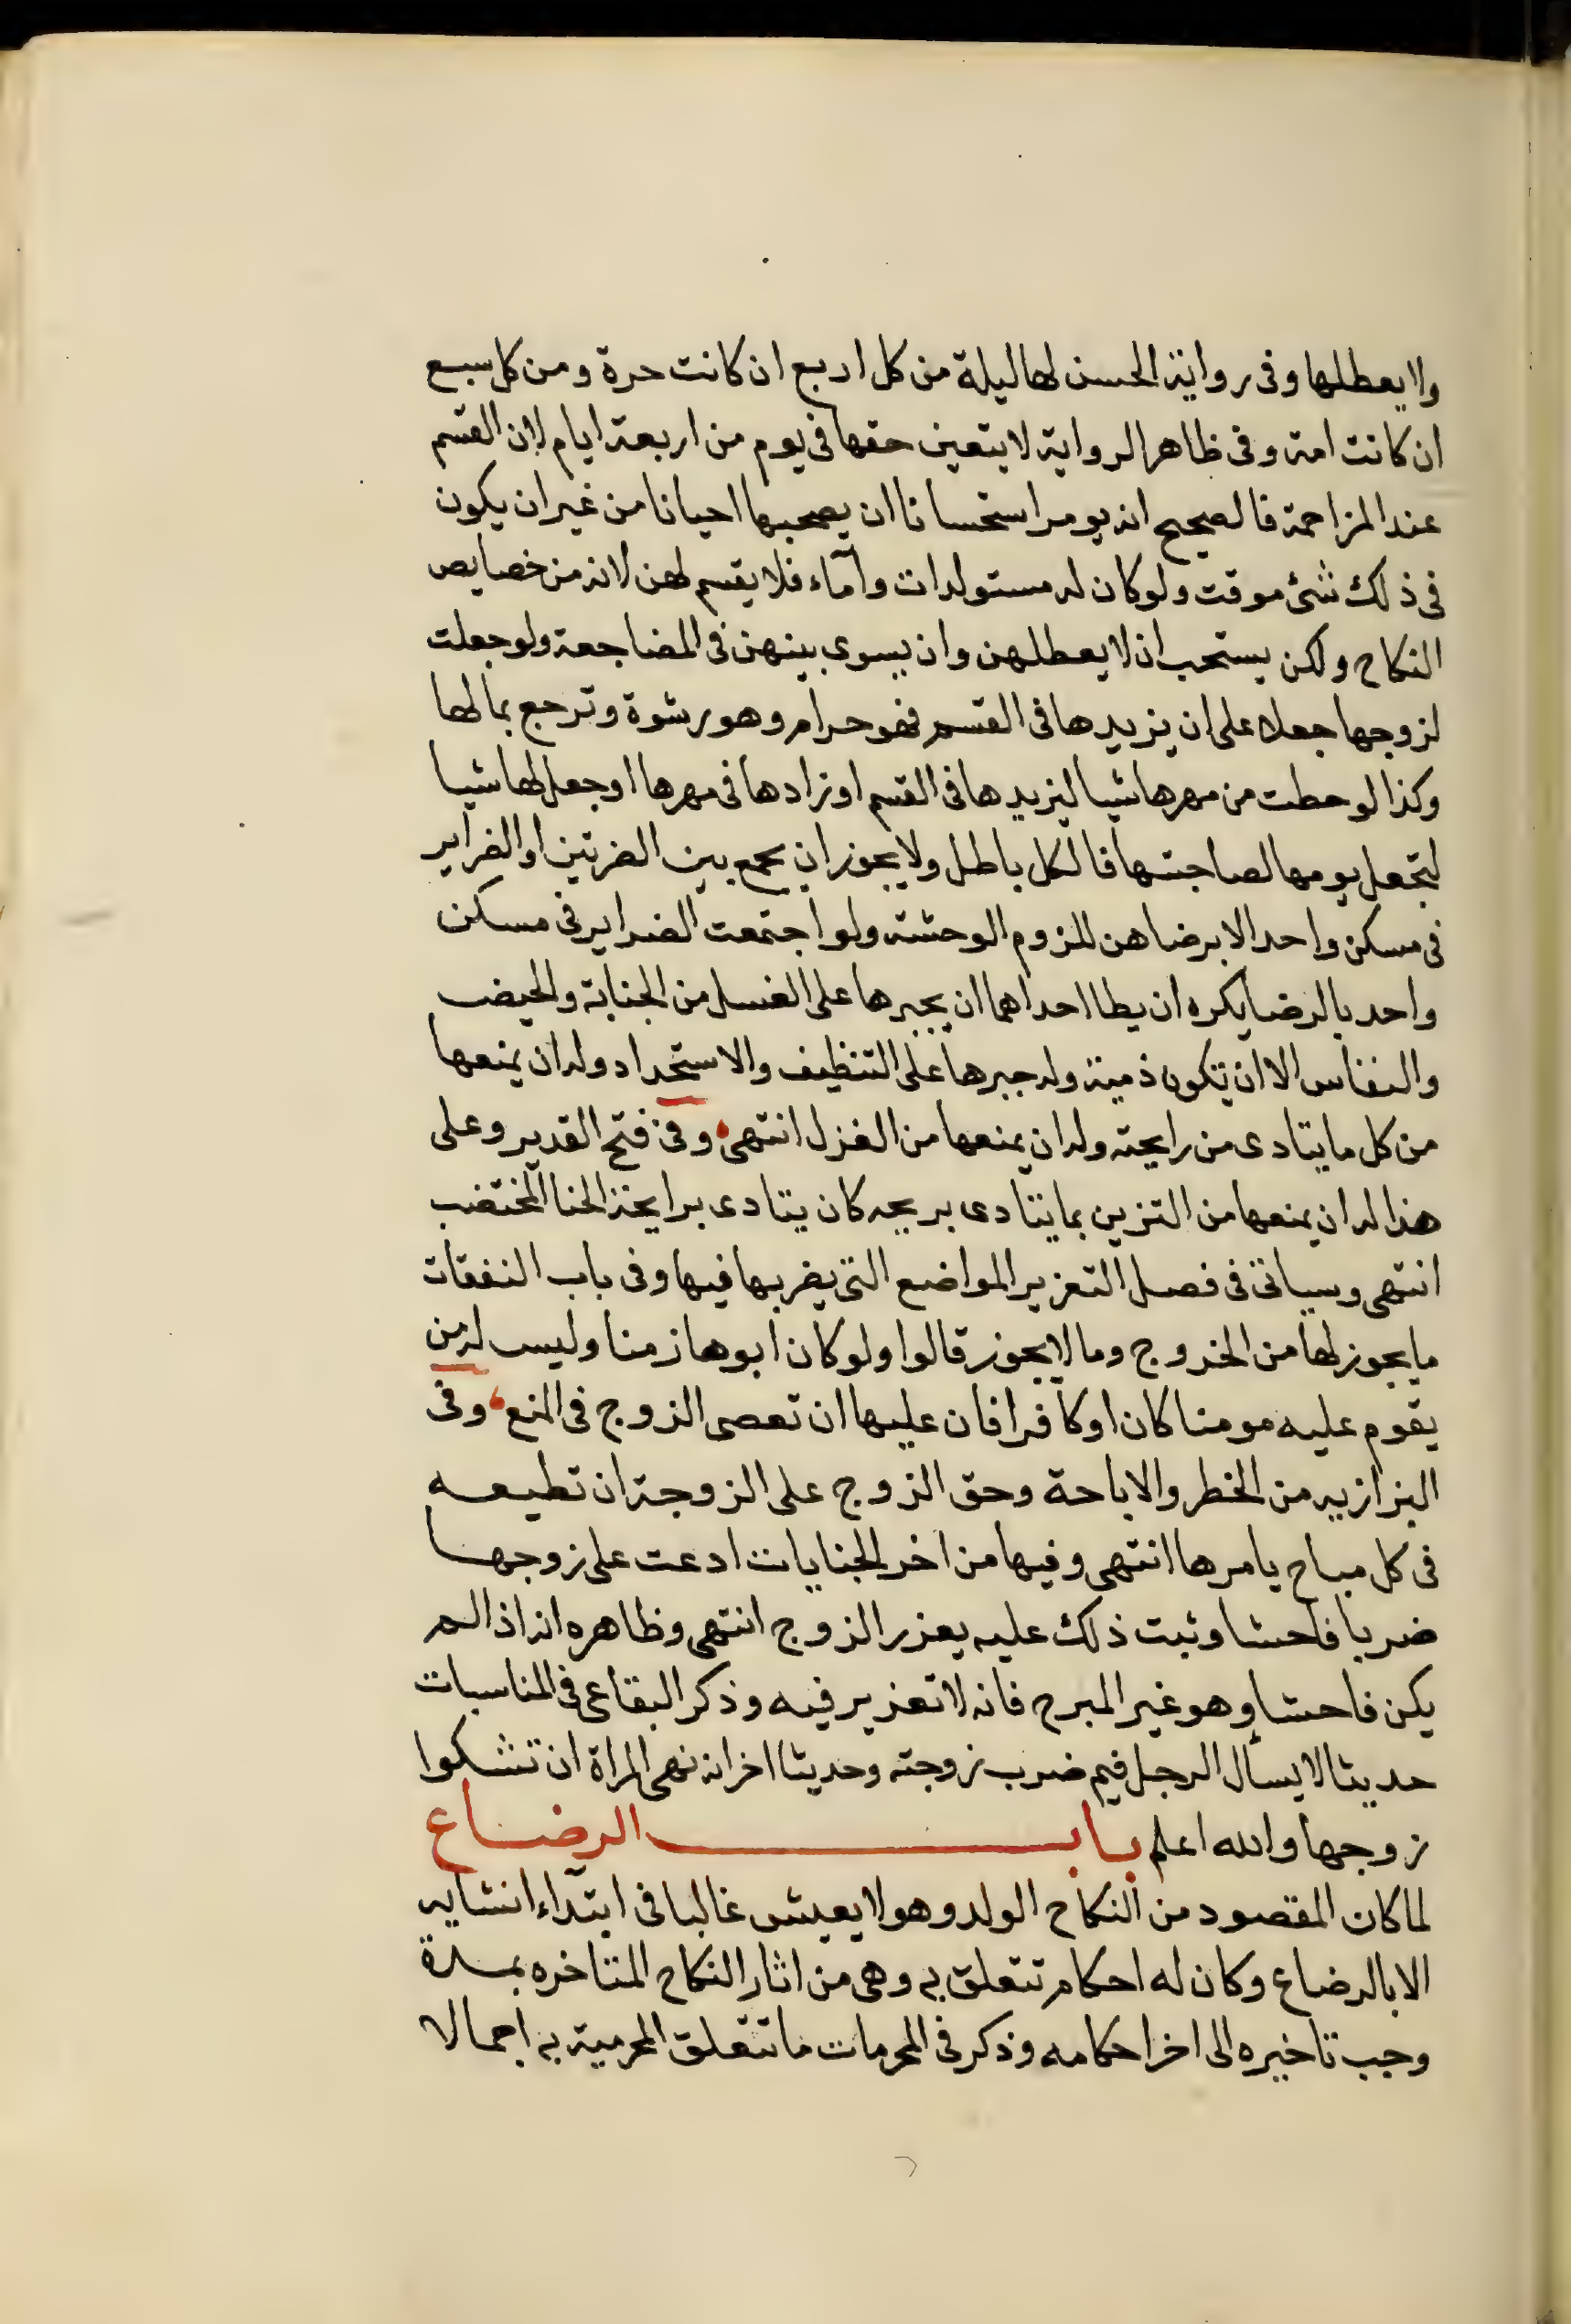 ولا يعطلها وفى رواية الحسن لها ليلة من كل اربع ان كانت حرة ومن كل سبع
ان كانت امة وفى ظاهر الرواية لا يتعين حقها فى يوم من اربعة ايام لان القسم
عند المزاحمة فالصحيح انه يومر استحسانا ان يصحبها احيانا من غير ان يكون
فى ذلك شئ موقت ولو كان له مستولدات وآماء فلا يقسم لهن لانه من خصايص
النكاح ولكن يستحب ان لا يعطلهن وان يسوى بينهن فى المضاجعة ولو جعلت
لزوجها جعلا على ان يزيدها فى القسم فهو حرام وهو رشوة وترجع بمالها
وكذا لو حطت من مهرها شيا ليزيدها فى القسم او زادها فى مهرها او جعل لها شيا
لتجعل يومها لصاحبتها فالكل باطل ولا يجوز ان يجمع بين الضرتين او الضراير
فى مسكن واحد الا برضاهن للزوم الوحشة ولو اجتمعت الضراير فى مسكن
واحد بالرضا يكره ان يطا احداهما ان يجبرها على الغسل من الجنابة والحيض
والنفاس الا ان تكون ذمية وله جبرها على التنظيف والاستحداد وله ان يمنعها
من كل ما يتادى من رايحته وله ان يمنعها من الغزل انتهى وفى فتح القدير وعلى
هذا له ان يمنعها من التزين بما يتادى بريحه كان يتادى برايحة الحنا المختضب
انتهى وسياتى فى فصل التعزير المواضع التى يضربها فيها وفى باب النفقات
ما يجوز لها من الخروج وما لا يجوز قالوا ولو كان ابوها زمنا وليس له من
يقوم عليه مومنا كان او كافرا فان عليها ان تعصى الزوج فى المنع وفى
البزازيه من الخطر والاباحة وحق الزوج على الزوجة ان تطيعه
فى كل مباح يامرها انتهى وفيها من اخر الجنايات ادعت على زوجها
ضربا فاحشا وثبت ذلك عليه يعزر الزوج انتهى وظاهره انه اذا لم
يكن فاحشا وهو غير المبرح فانه لا تعزير فيه وذكر البقاعى فى المناسبات
حديثا لا يسأل الرجل فيم ضرب زوجته وحديثا اخر انه نهى المراة ان تشكوا
زوجها والله اعلم باب الرضاع
لما كان المقصود من النكاح الولد وهو لا يعيش غالبا فى ابتداء انشايه
الا بالرضاع وكان له احكام تتعلق به وهى من اثار النكاح المتاخره بمدة
وجب تاخيره الى اخر احكامه وذكر فى المحرمات ما تتعلق المحرمية به اجمالا